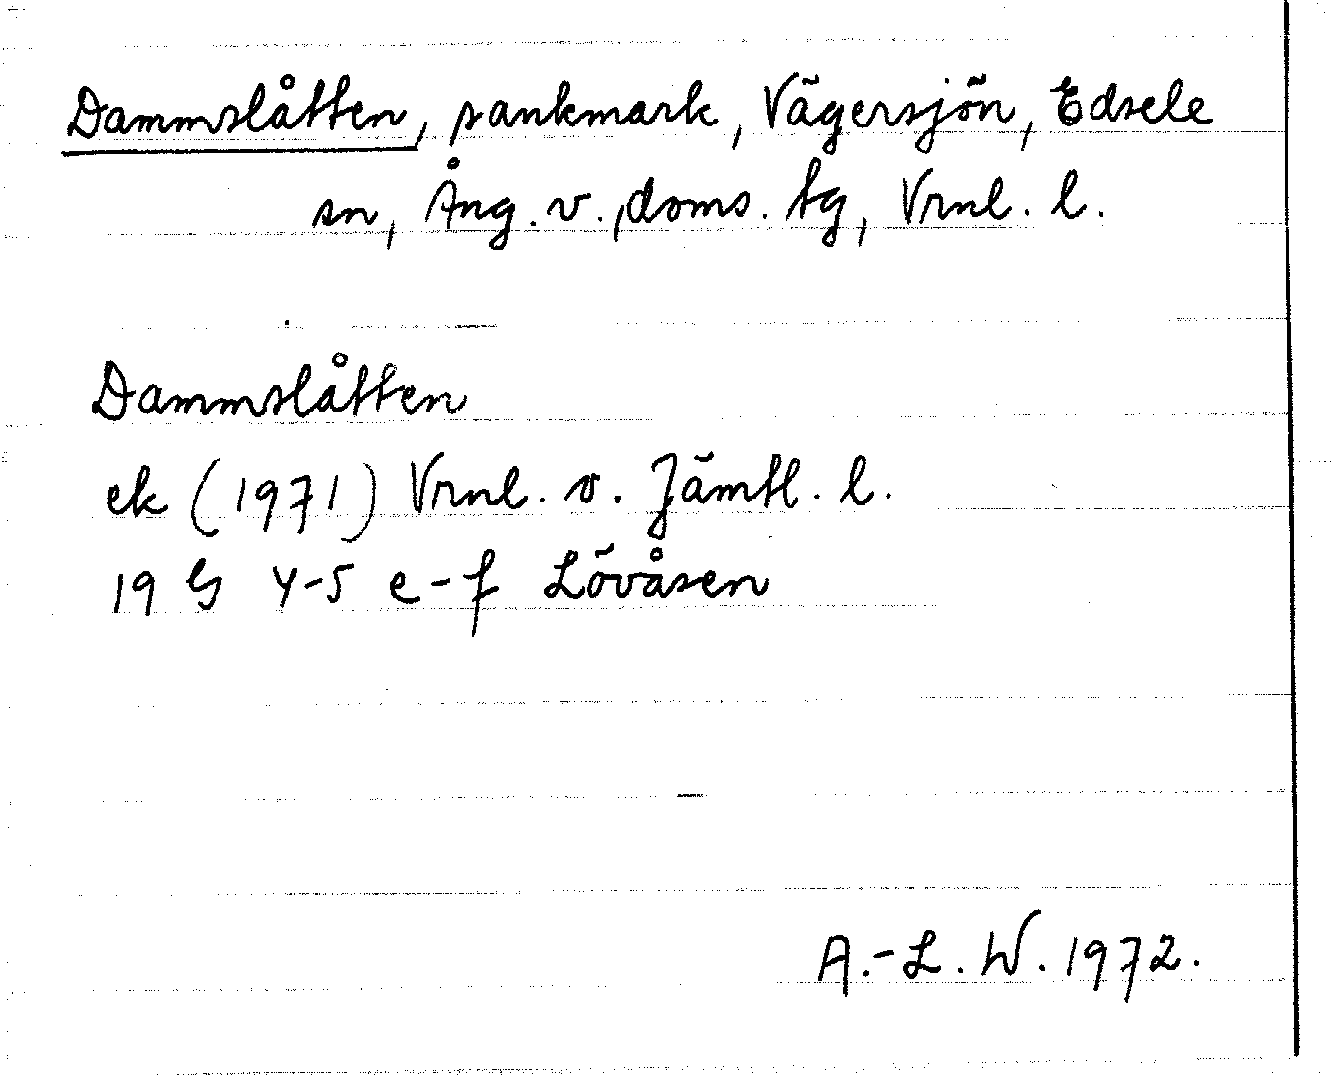 Dammslåtten, sankmark, Vägersjön, Edsele
sn, Ång. v., doms. tg, Vrnl. l.
Dammslåtten
ek (1971) Vrnl. o. Jämtl. l.
19 G 4-5 e-f Lövåsen
A.-L. W. 1972.